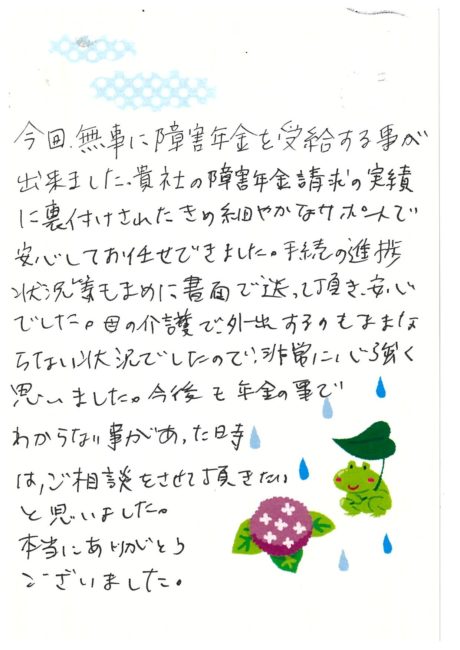 今回、無事に障害年金を受給する事が
出来ました。貴社の障害年金請求の実績
に裏付けされたきめ細やかなサポートで
安心してお任せできました。手続の進捗
状況等もまめに書面で送って頂き、安心
でした。母の介護で、外出するのもままな
らない状況でしたので、非常に心強く
思いました。今後も年金の事で
わからない事があった時
は、ご相談をさせて頂きたい
と思いました。
本当にありがとう
ございました。